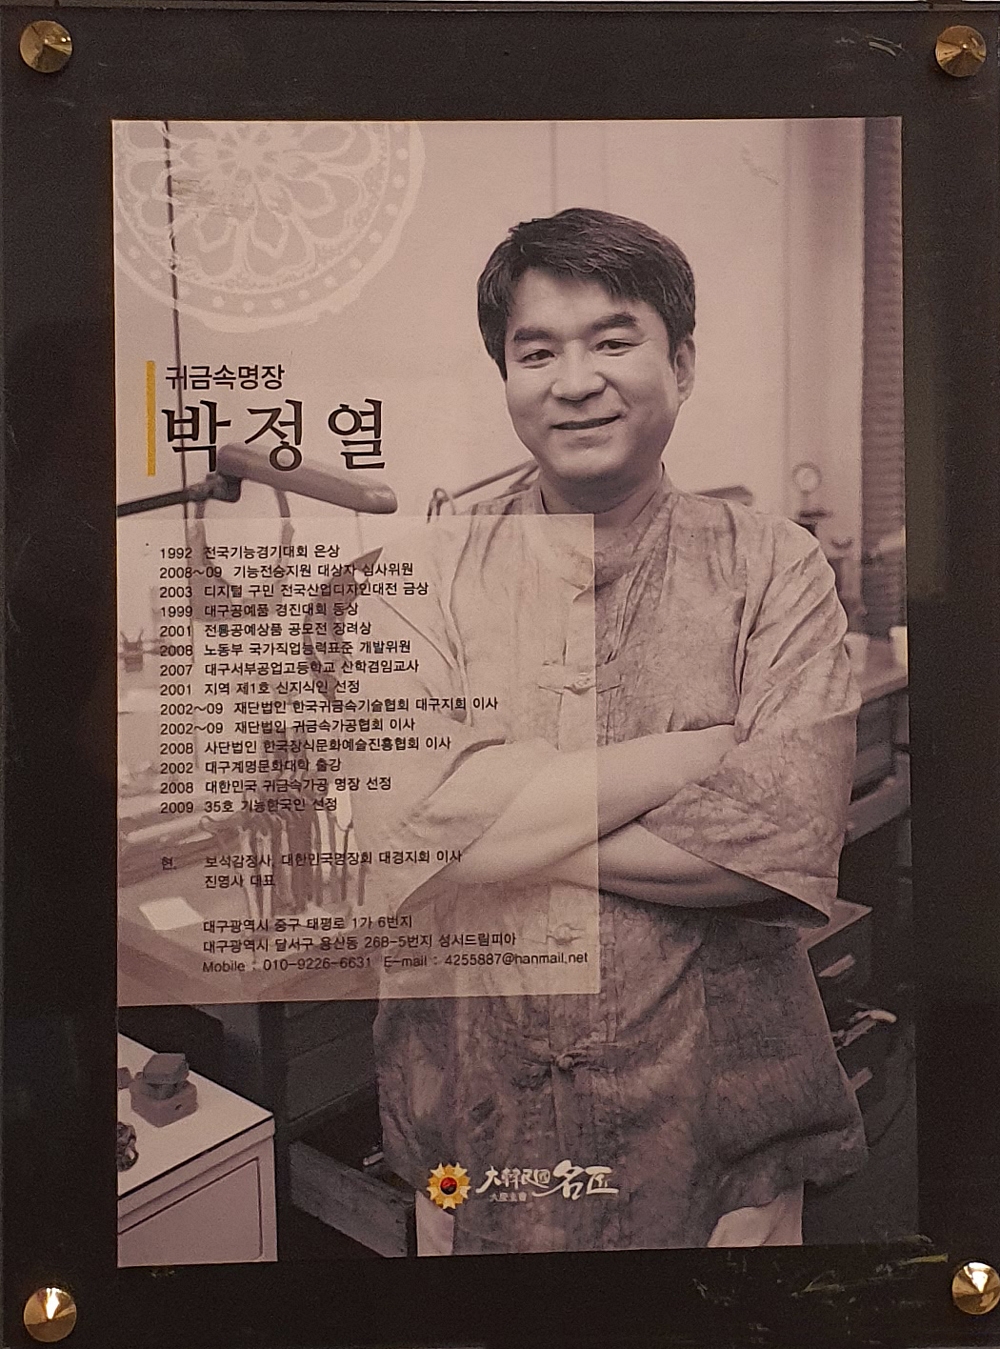 귀금속명장
박정열
1992 전국기능경기대회 은상
2008~09 기능전승지원 대상자 심사위원
2003 디지털 구민 전국산업디자인대전 금상
1999 대구공예품 경진대회 동상
2001 전통공예상품 공모전 장려상
2008 노동부 국가직업능력표준 개발위원
2007 대구서부공업고등학교 산학겸임교사
2001 지역 제1호 신지식인 선정
2002~09 재단법인 한국귀금속기술협회 대구지회 이사
2002~09 재단법인 귀금속가공협회 이사
2008 사단법인 한국장식문화예술진흥협회 이사
2002 대구계명문화대학 출강
2008 대한민국 귀금속가공 명장 선정
2009 35호 기능한국인 선정
현, 보석감정사, 대한민국명장회 대경지회 이사
진영사 대표
대구광역시 중구 태평로 1가 6번지
대구광역시 달서구 용산동 268-5번지 성서드림피아
Mobile : 010-9226-6631 E-mail : 4255887@hanmail.net
大韓民國名匠